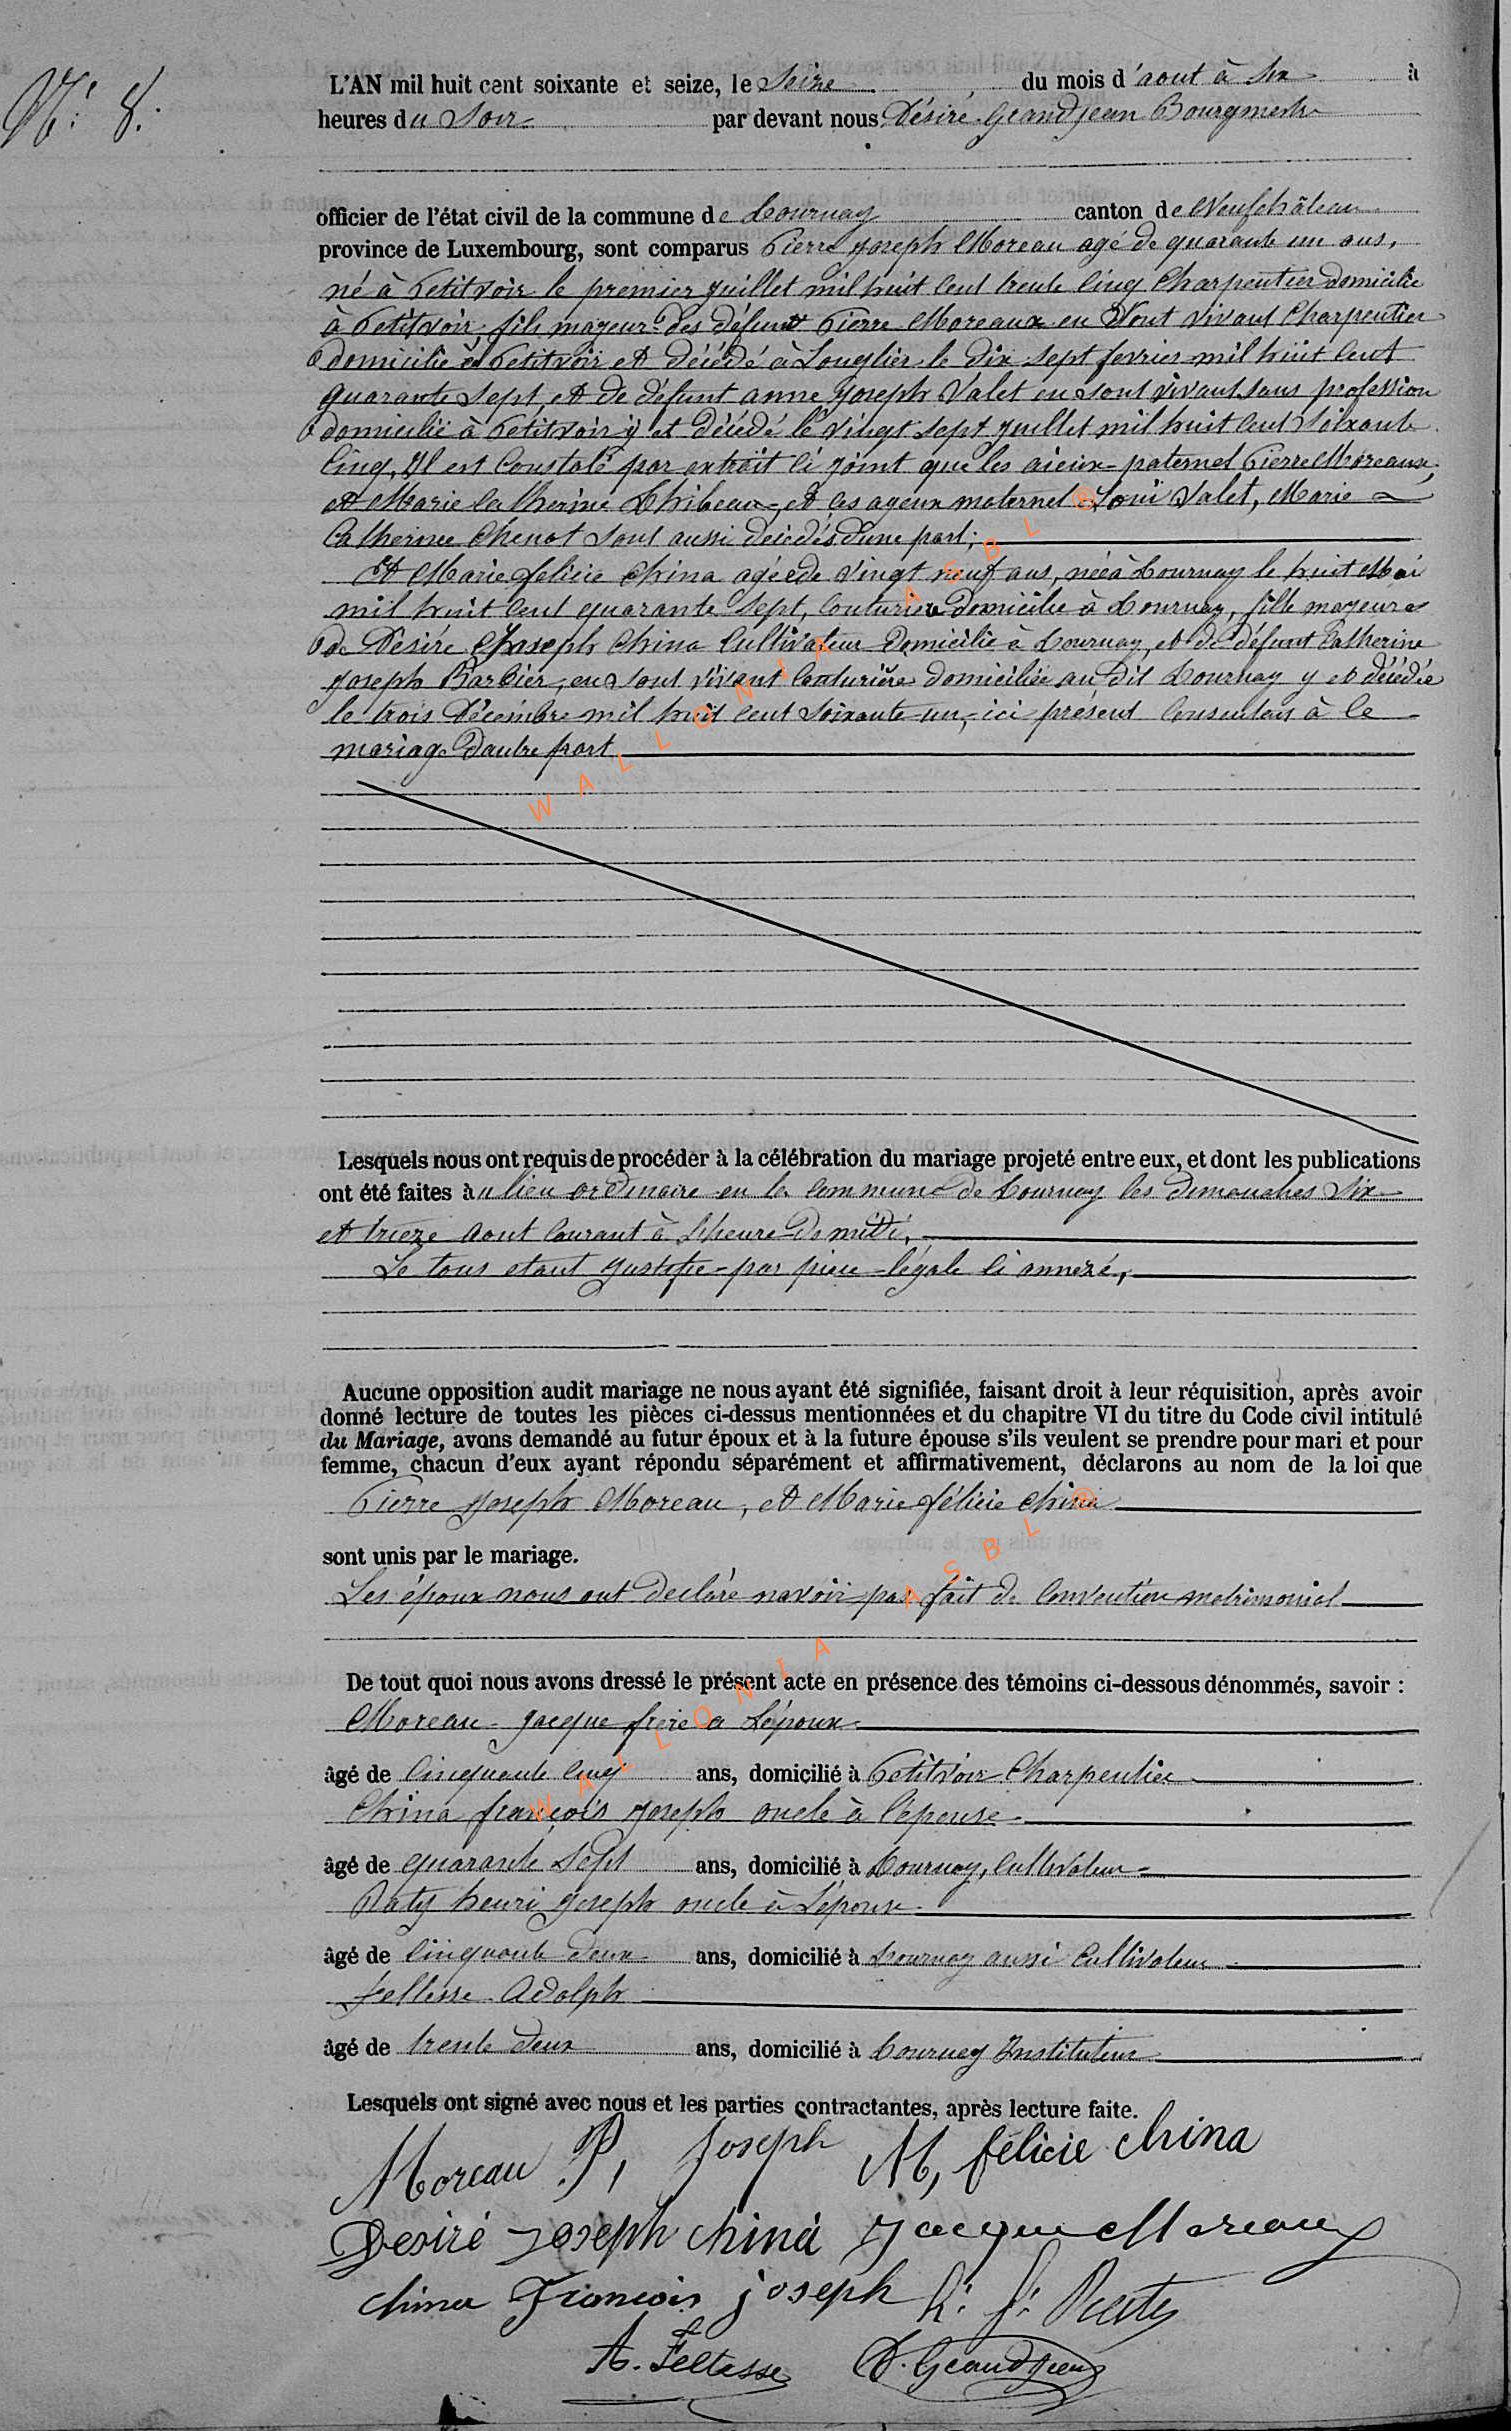 N° 8.
L'AN mil huit cent soixante et seize, le Seize du mois d'aout à six à
heures du Soir par devant nous Désiré Grandjean Bourgmestre
officier de l'état civil de la commune de Tournay canton de Neufchâteau
province de Luxembourg, sont comparus Pierre Joseph Moreau agé de quarante un ans,
né à Petitvoir le premier juillet mil huit cent trente cinq Charpentier domicilie
à Petitvoir, fils majeur des défunt Pierre Moreaux en Vont vivant Charpentier
domicilié à Petitvoir et décédé à Longlier le dix sept fevrier mil huit cent
quarante sept, et de défunt anne Joseph Valet en sont vivant sans profession
domicilié à Petitvoir y et décédé le vingt sept juillet mil huit cent soixante
cinq, Il est constaté par extrait ci joint que les aieux paternel Pierre Moreaux,
et Marie Catherine Thibeaux, et les ayeux maternel Loui Valet, Marie
Catherine Chenot sont aussi décédés d'une part;
Et Marie félicie China agée de vingt neuf ans, née à Tournay le huit Mai
mil huit cent quarante sept, couturière domicilie à Tournay, fille majeure
de Désiré Joseph China Cultivateur domicilié à Tournay, et de défunt Catherine
Joseph Barbier, en sont vivant Couturière domiciliée au dit Tournay y et décédée
le trois Décembre mil huit cent soixante un, ici présent consentans à ce
mariage d'autre part
Lesquels nous ont requis de procéder à la célébration du mariage projeté entre eux, et dont les publications
ont été faites au lieu ordinaire en la commune de Tournay les dimanches six
et trieze aout courant à l'heure de midi,
Le tous etant justifié par piece légale ci annexé,
Aucune opposition audit mariage ne nous ayant été signifiée, faisant droit à leur réquisition, après avoir
donné lecture de toutes les pièces ci-dessus mentionnées et du chapitre VI du titre du Code civil intitulé
du Mariage, avons demandé au futur époux et à la future épouse s'ils veulent se prendre pour mari et pour
femme, chacun d'eux ayant répondu séparément et affirmativement, déclarons au nom de la loi que
Pierre Joseph Moreau, et Marie félicie China
sont unis par le mariage.
Les époux nous ont declaré navoir pas fait de convention matrimonial
De tout quoi nous avons dressé le présent acte en présence des témoins ci-dessous dénommés, savoir :
Moreau Jacque frere a l'époux
âgé de cinquante cinq ans, domicilié à Petitvoir Charpentier
China françois Joseph oncle à l'épouse
âgé de quarante sept ans, domicilié à Tournay, Cultivateur
Raty henri Joseph oncle à l'épouse
âgé de cinquante deux ans, domicilié à Tournay aussi Cultivateur
Feltesse Adolph
âgé de trente deux ans, domicilié à Tournay Instituteur
Lesquels ont signé avec nous et les parties contractantes, après lecture faite.
Moreau P, Joseph M, félicie china
Desiré Joseph china Jacque Moreaux
china François joseph h. J. Raty
A. Feltesse D. Grandjean
WALLONIA ASBL ®
WALLONIA ASBL ®